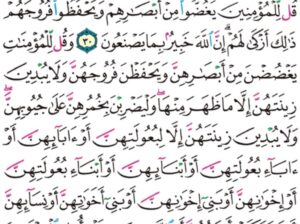 قُل لِّلْمُؤْمِنِينَ يَغُضُّوا۟ مِنْ أَبْصَـٰرِهِمْ وَيَحْفَظُوا۟ فُرُوجَهُمْ
ذَٰلِكَ أَزْكَىٰ لَهُمْ إِنَّ ٱللَّهَ خَبِيرٌۢ بِمَا يَصْنَعُونَ ٣٠ وَقُل لِّلْمُؤْمِنَـٰتِ
يَغْضُضْنَ مِنْ أَبْصَـٰرِهِنَّ وَيَحْفَظْنَ فُرُوجَهُنَّ وَلَا يُبْدِينَ
زِينَتَهُنَّ إِلَّا مَا ظَهَرَ مِنْهَا وَلْيَضْرِبْنَ بِخُمُرِهِنَّ عَلَىٰ جُيُوبِهِنَّ
وَلَا يُبْدِينَ زِينَتَهُنَّ إِلَّا لِبُعُولَتِهِنَّ أَوْ ءَابَآئِهِنَّ أَوْ
ءَابَآءِ بُعُولَتِهِنَّ أَوْ أَبْنَآئِهِنَّ أَوْ أَبْنَآءِ بُعُولَتِهِنَّ
أَوْ إِخْوَٰنِهِنَّ أَوْ بَنِىٓ إِخْوَٰنِهِنَّ أَوْ بَنِىٓ أَخَوَٰتِهِنَّ أَوْ نِسَآئِهِنَّ